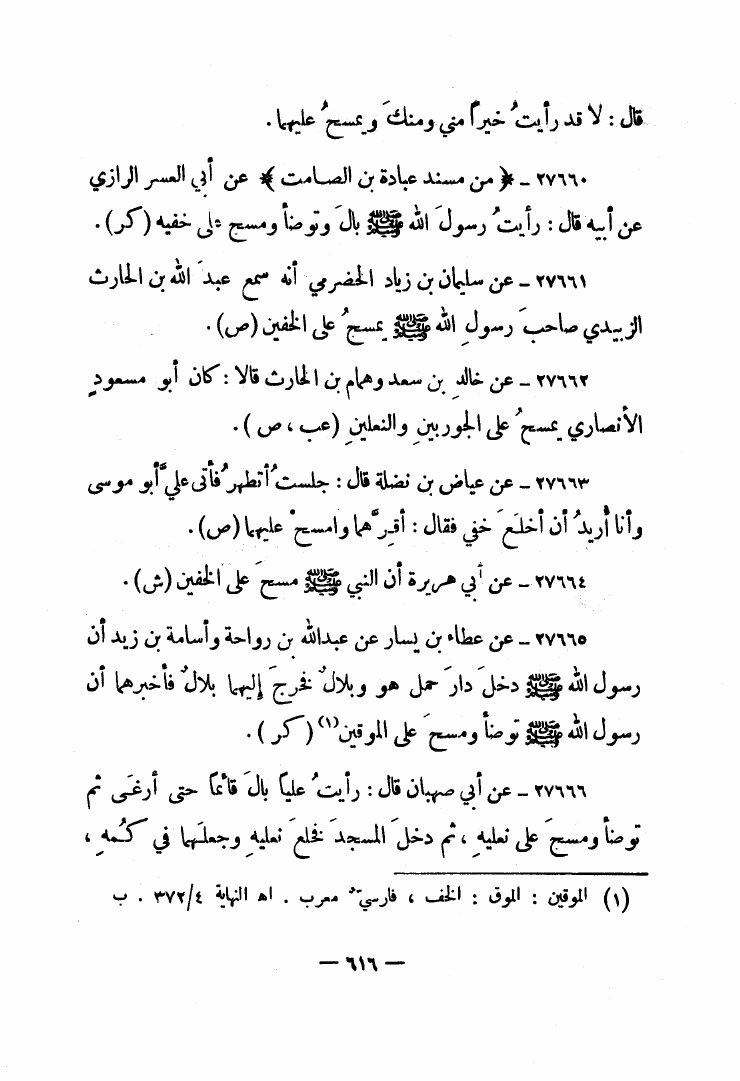 قال : لا قد رأيتُ خيراً مني ومنكَ ويمسحُ عليهما .
٢٧٦٦٠ ـ ﴿ من مسند عبادة بن الصامت ﴾ عن أبي العسر الرازي
عن أبيه قال : رأيتُ رسولَ الله ﷺ بالَ وتوضأ ومسح على خفيه ( كر ) .
٢٧٦٦١ ـ عن سليمان بن زياد الحضرمي أنه سمع عبدَ الله بن الحارث
الزبيدي صاحبَ رسولِ الله ﷺ يمسحُ على الخفين ( ص ) .
٢٧٦٦٢ ـ عن خالدِ بن سعد وهمام بن الحارث قالا : كان أبو مسعودٍ
الأنصاري يمسحُ على الجوربينِ والنعلينِ ( عب ، ص ) .
٢٧٦٦٣ ـ عن عياض بن نضلة قال : جلستُ أتطهرُ فأتى عليَّ أبو موسى
وأنا أُريدُ أن أخلعَ خفي فقال : أقرَّهما وامسحْ عليهما ( ص ) .
٢٧٦٦٤ ـ عن أبي هريرة أن النبي ﷺ مسحَ على الخفين ( ش ) .
٢٧٦٦٥ ـ عن عطاء بن يسار عن عبدالله بن رواحة وأسامة بن زيد أن
رسول الله ﷺ دخلَ دارَ حمل هو وبلالٌ فخرجَ إليهما بلالٌ فأخبرهما أن
رسول الله ﷺ توضأ ومسحَ على الموقين(١) ( كر ) .
٢٧٦٦٦ ـ عن أبي صهبان قال : رأيتُ علياً بالَ قائماً حتى أرغَى ثم
توضأ ومسحَ على نعليهِ ، ثم دخلَ المسجدَ فخلعَ نعليهِ وجعلَهما في كُمهِ ،
(١) الموقين : الموق : الخف ، فارسيٌّ معرب . اهـ النهاية ٣٧٢/٤ . ب
— ٦١٦ —